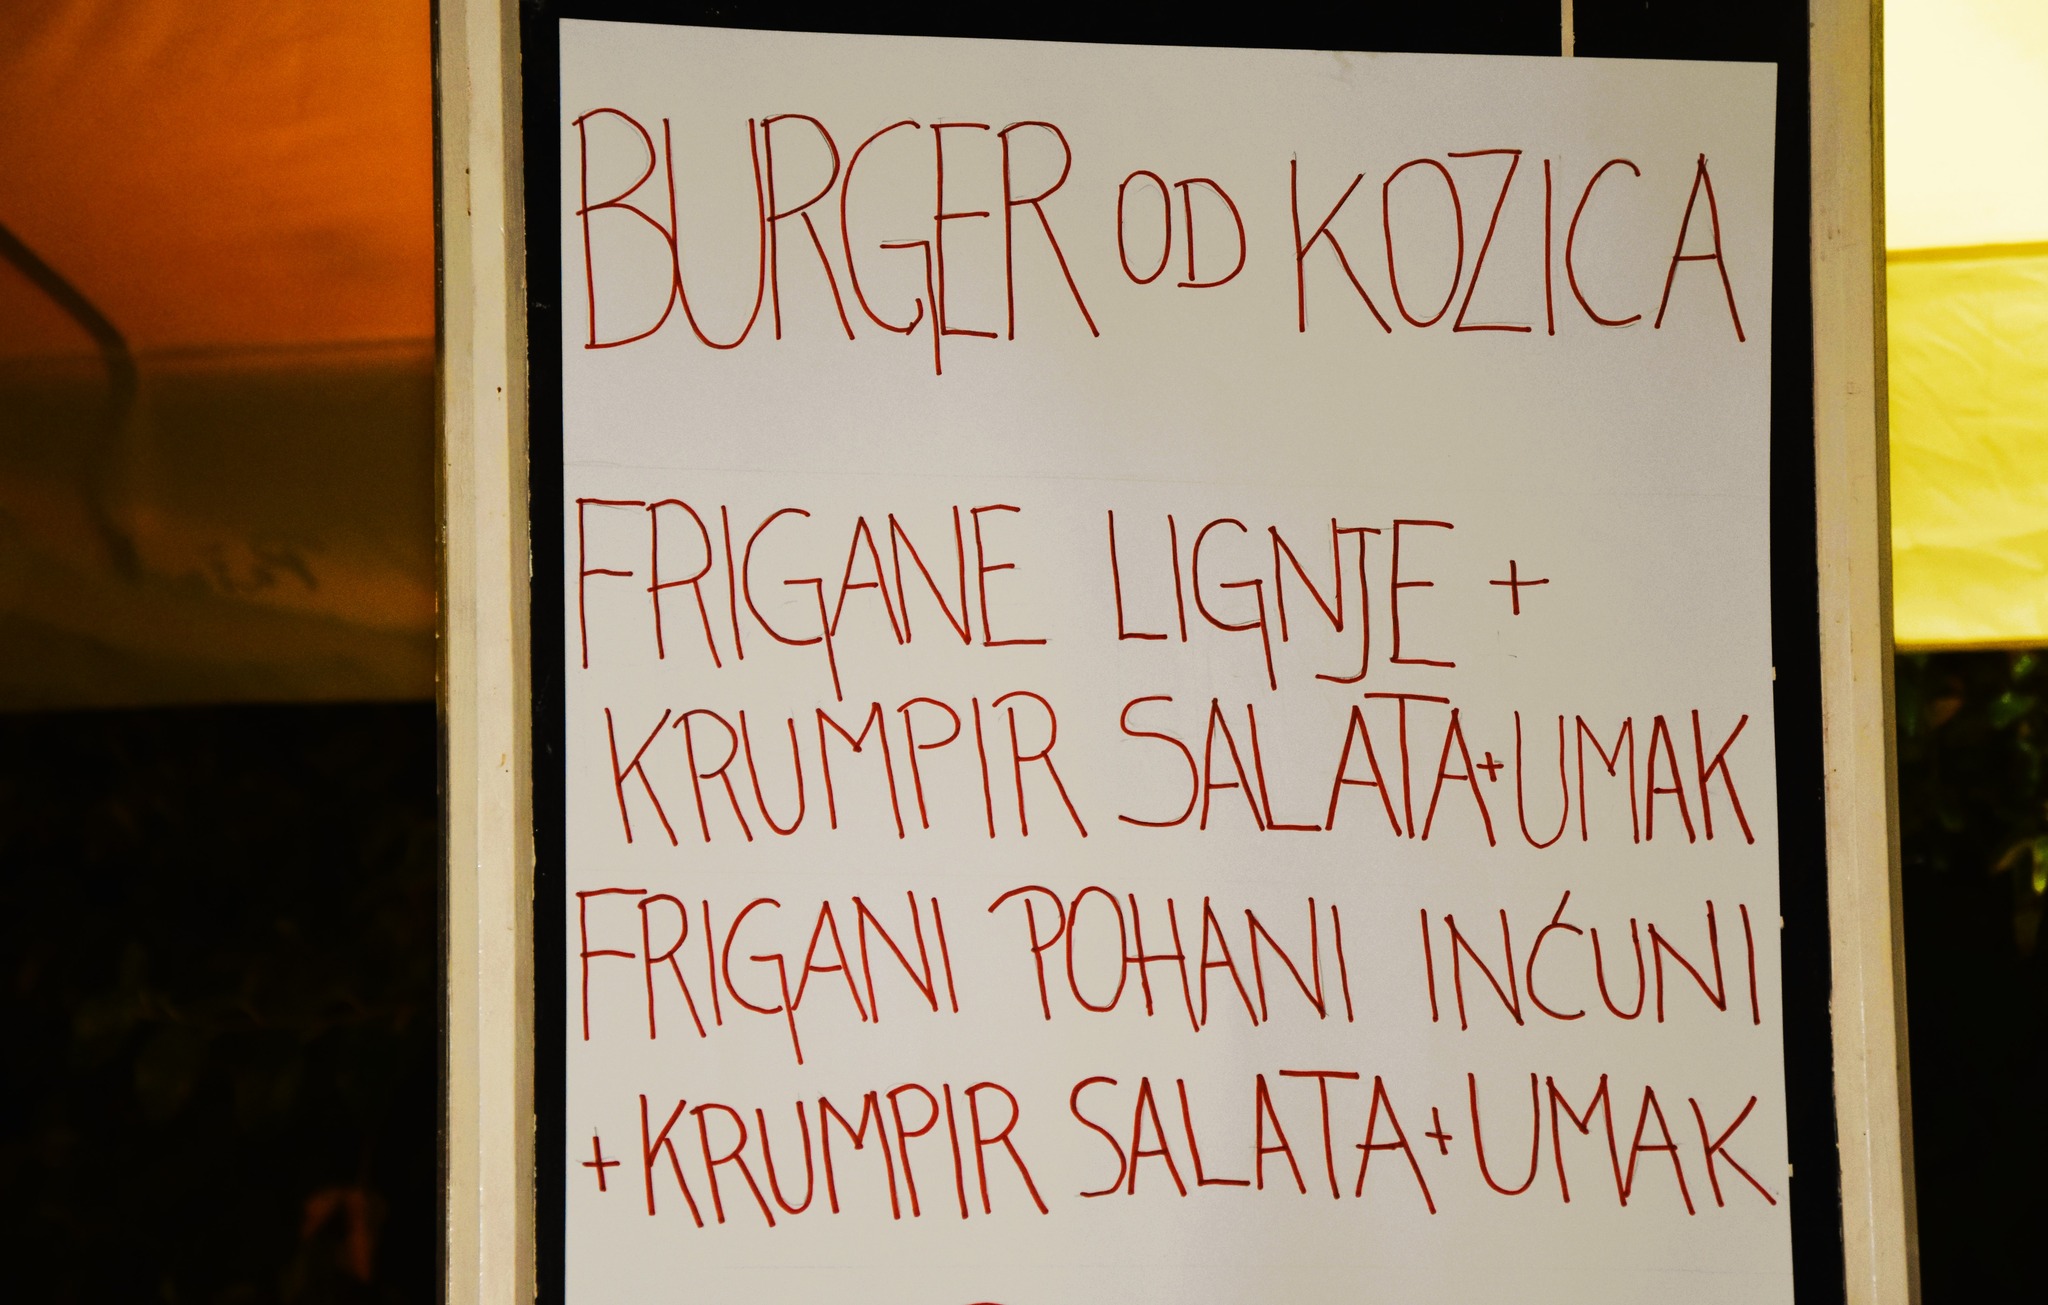 BURGER OD KOZICA
FRIGANE LIGNJE +
KRUMPIR SALATA+UMAK
FRIGANI POHANI INĆUNI
+KRUMPIR SALATA+UMAK